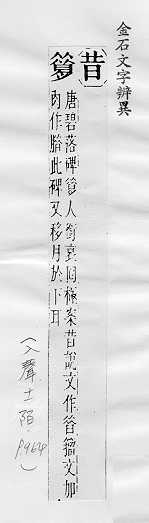 金石文字辨異
昔
唐碧落碑人銜哀罔極案昔說文作籀文加
肉作腊此碑又移月於下耳
(入聲十一陌. P964)